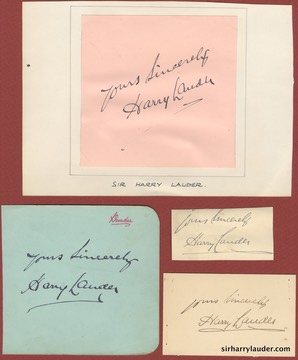 Yours Sincerely
Harry Lauder
SIR HARRY LAUDER.
Lauder
Yours Sincerely
Harry Lauder
Yours Sincerely
Harry Lauder
Yours Sincerely
Harry Lauder
sirharrylauder.com